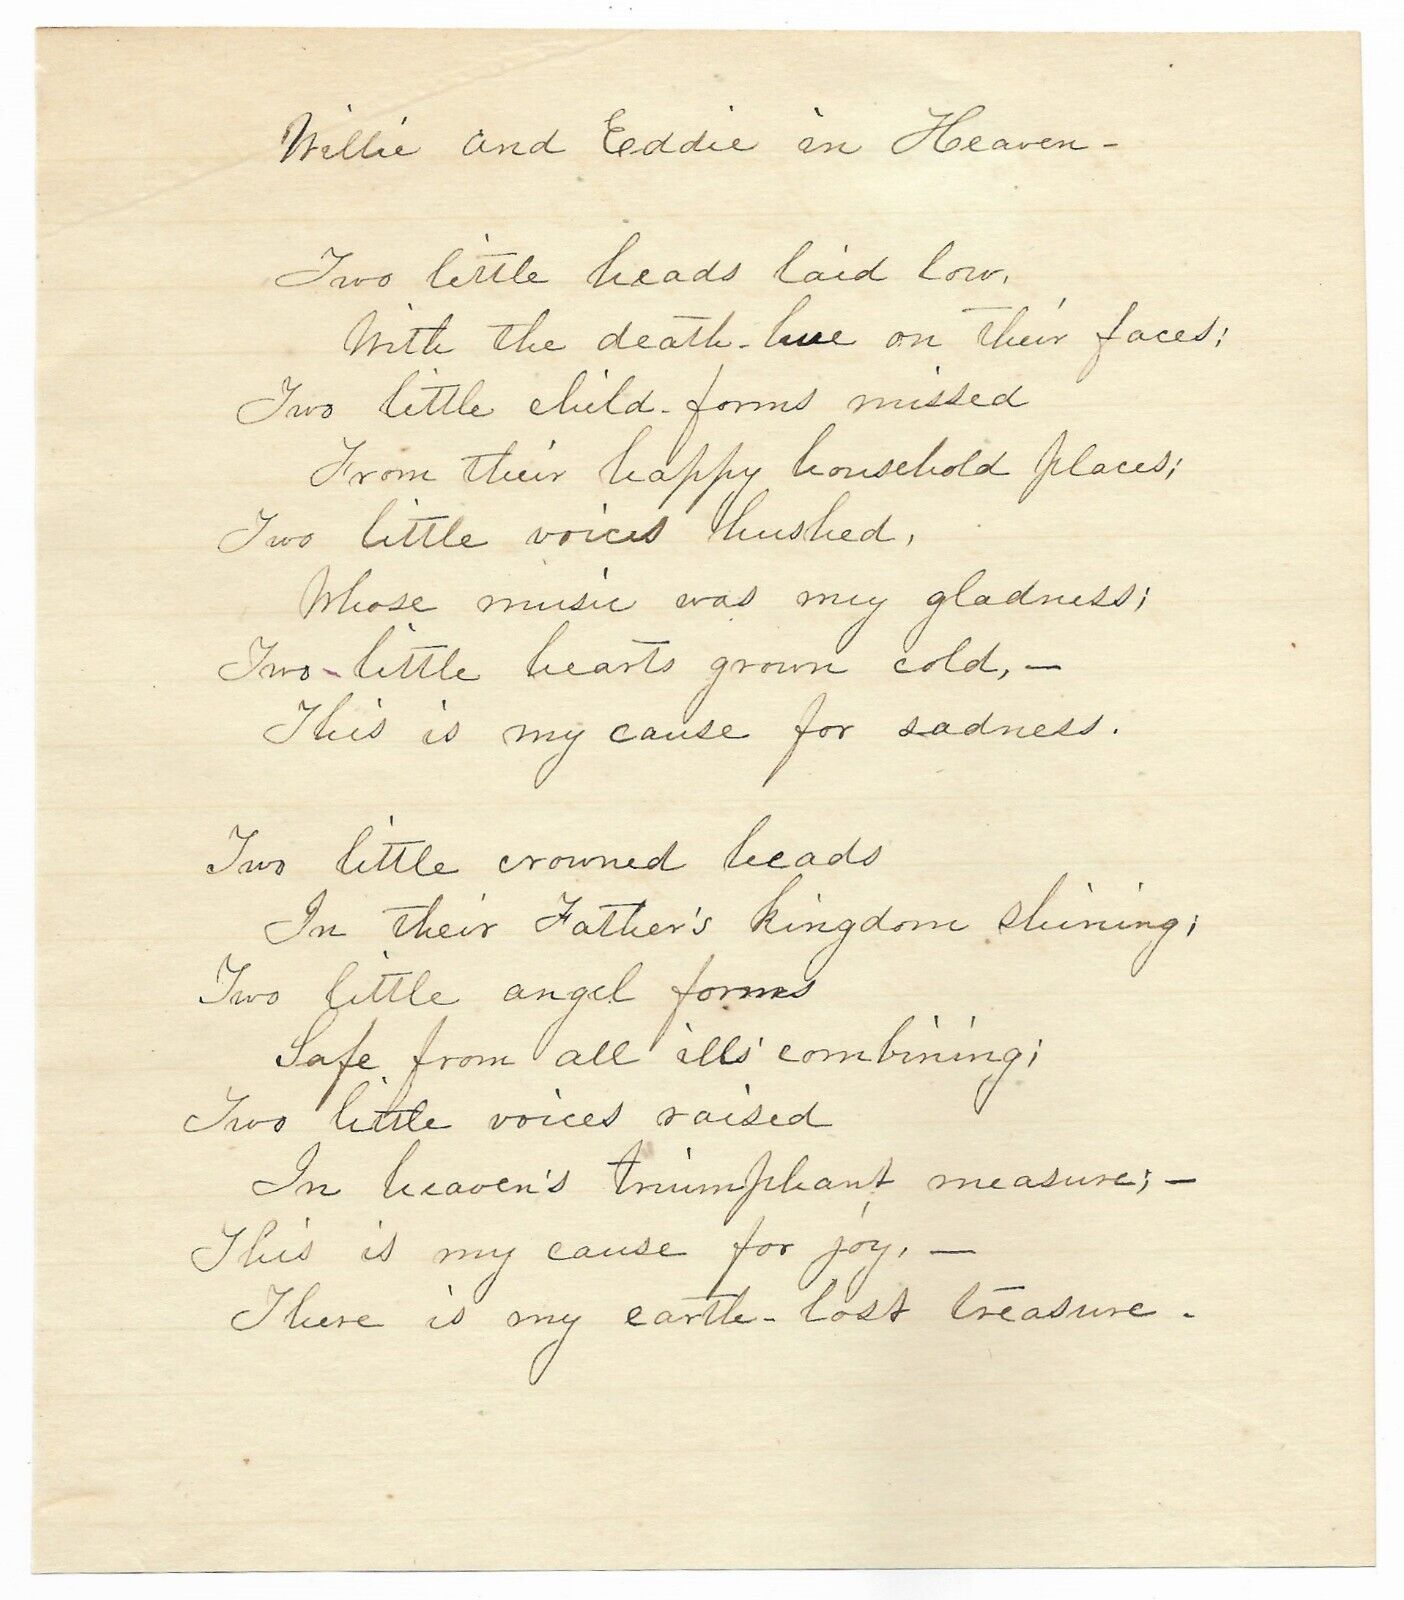 Willie and Eddie in Heaven-
Two little heads laid low,
With the death-hue on their faces;
Two little child-forms missed
From their happy household places;
Two little voices hushed,
Whose music was my gladness;
Two little hearts grown cold,—
This is my cause for sadness.
Two little crowned heads
In their Father's kingdom shining;
Two little angel forms
Safe from all ills' combining;
Two little voices raised
In heaven's triumphant measure;—
This is my cause for joy,—
There is my earth-lost treasure.